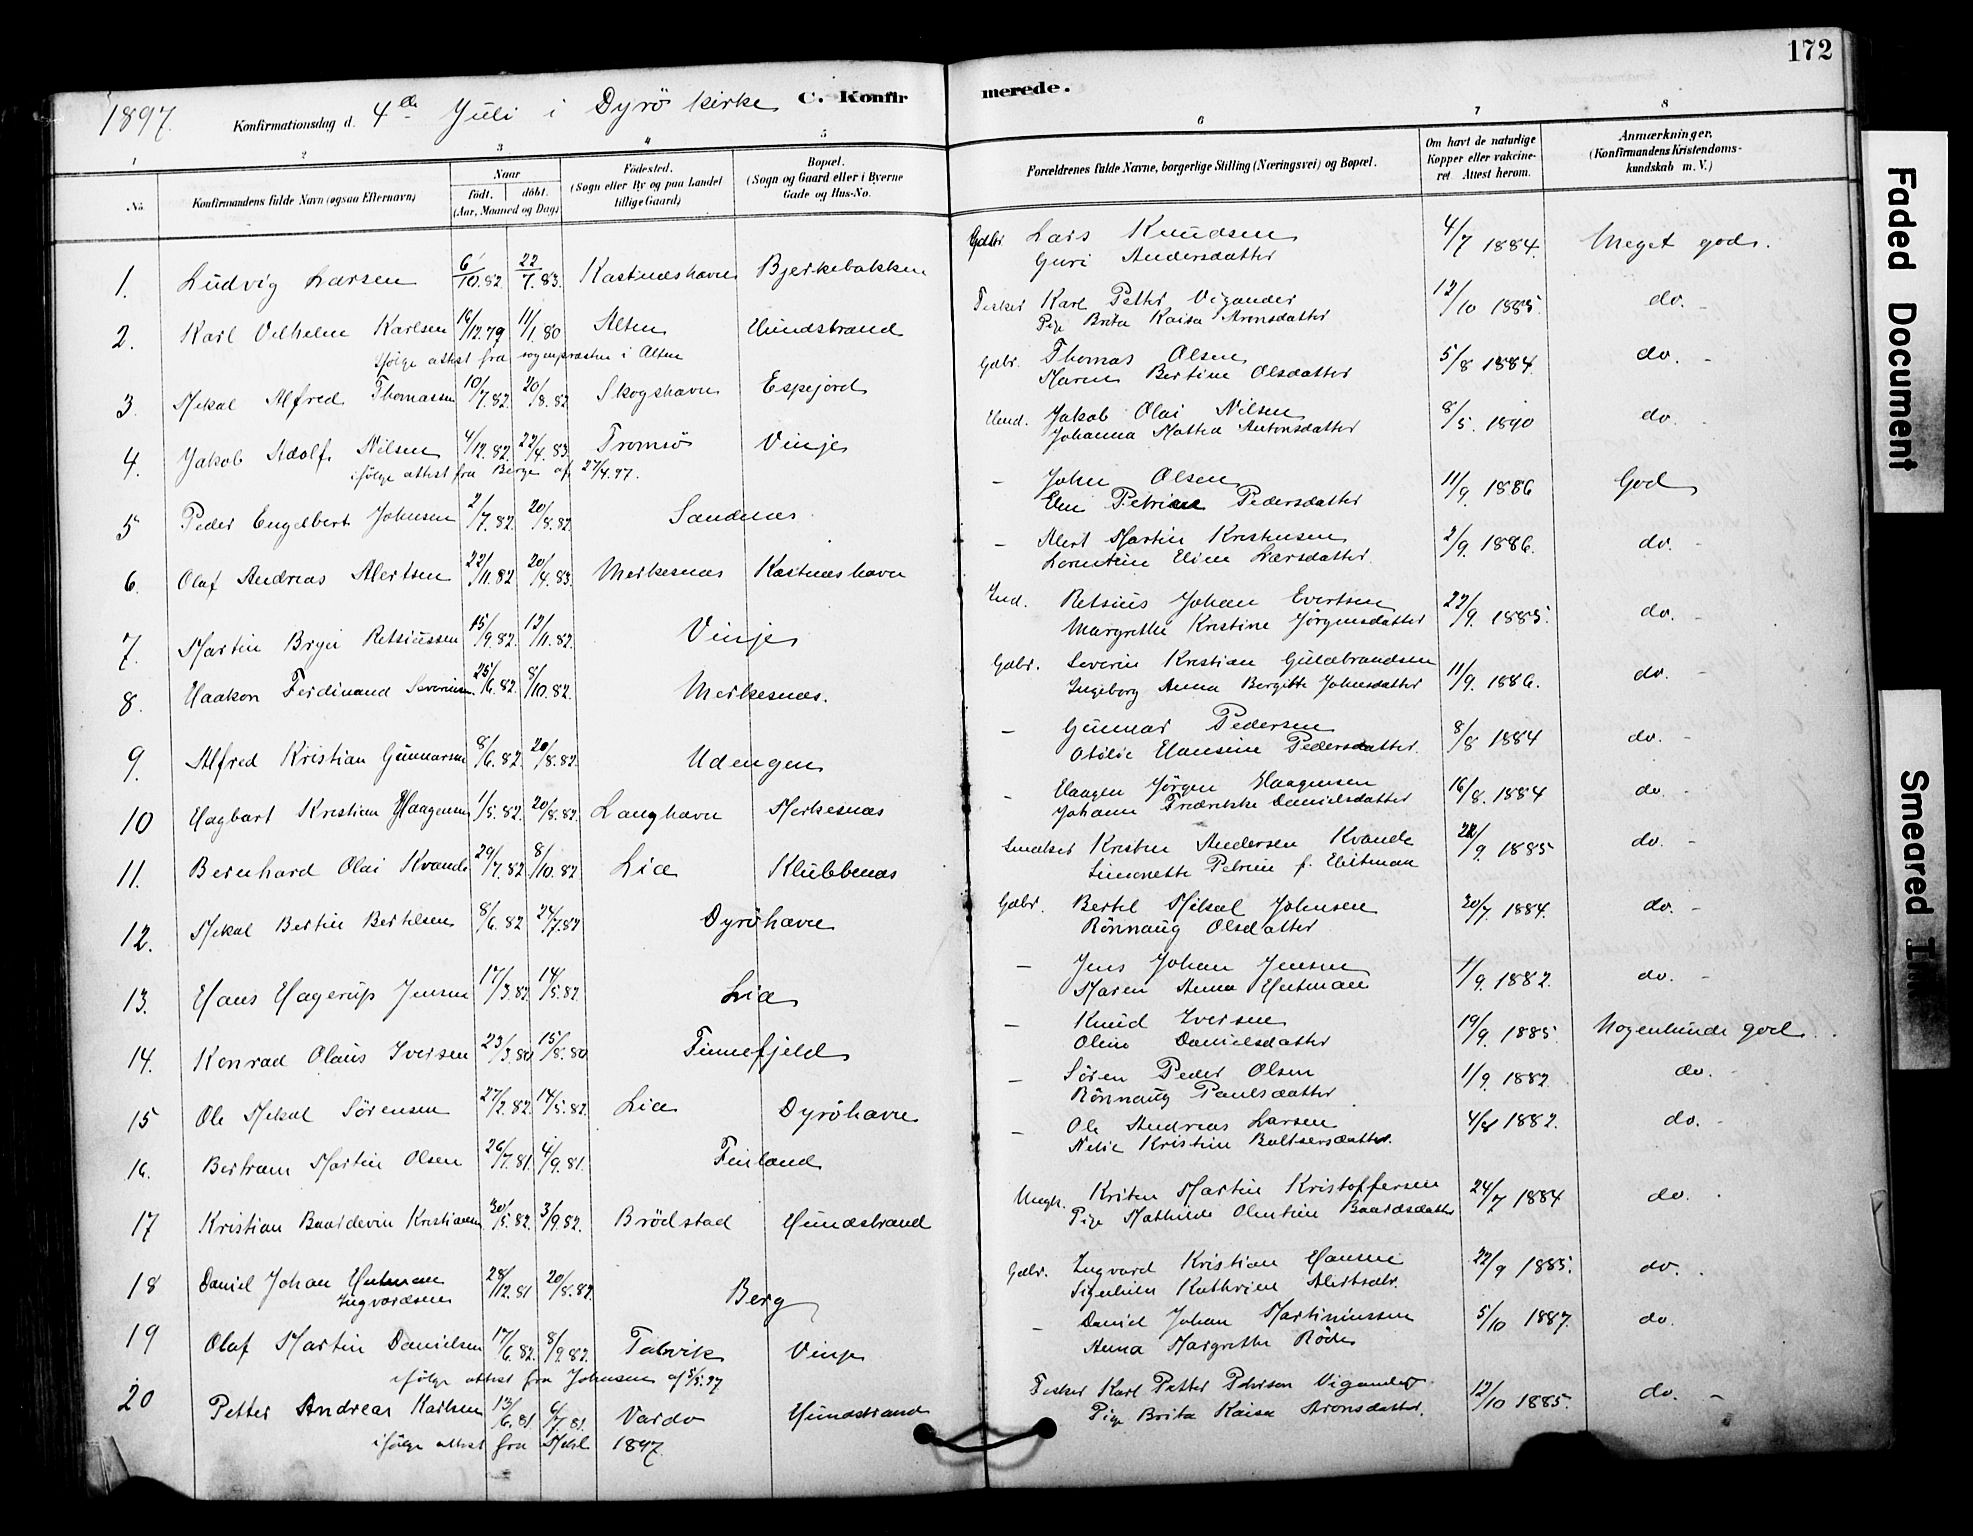 172
1897.
Konfirmationsdag d. 4de Juli i Dyrö kirke
C. Konfir
merede.
1 2 3 4 5 6 7 8
No. Konfirmandens fulde Navn (ogsaa Efternavn) Naar født. døbt. (Aar, Maaned og Dag) Fødested. (Sogn eller By og paa Landet tillige Gaard) Bopæl. (Sogn og Gaard eller i Byerne Gade og Hus-No.
Forældrenes fulde Navne, borgerlige Stilling (Næringsvei) og Bopæl. Om havt de naturlige Kopper eller vakcineret. Attest herom. Anmærkninger. (Konfirmandens Kristendomskundskab m. V.)
1. Ludvig Larsen 6/10.82. 22/7.83. Kastnæshavn Bjerkebakken Gdbr Lars Knudsen 4/7 1884. Meget god.
Guri Andersdatter
2. Karl Vilhelm Karlsen 16/12.79 11/1.80 Alten Hundstrand Fisker Karl Petter Vigander 12/10 1885. do.
Pige Brita Kaisa Aronsdatter
ifølge attest fra sognepræsten i Alten
3. Mikal Alfred Thomassen 10/7.82. 20/8.82 Skogshavn Espejord Gdbr. Thomas Olsen 5/8 1884. do.
Maren Bertine Olsdatter
4. Jakob Adolf Nilsen 4/12.82. 22/4.83. Tromsö Vinje Jakob Olai Nilsen 8/5. 1890 do.
Johanna Antonsdatter
ifølge attest fra Berge af 27/4.97.
5 Peder Engelbert Johnsen 2/7.82. 20/8.82. Sandnæs - John Olsen 11/9. 1886 God
Elen Petrine Pedersdatter
6. Olaf Andreas Alertsen 22/11.82 20/4.83. Merkesnæs Kastnæshavn - Alert Martin Kristensen 2/9. 1886. do.
Lorentine Eline Larsdatter
7. Martin Retsiussen 15/9.82. 12/11.82. Vinje Ind. Retsius Johan Evertsen 22/9. 1885. do.
Margrethe Kristine Jörgensdatter
8. Haakon Ferdinand Severinsen 25/6.82. 8/10.82. Merkesnæs. Gdbr. Severin Kristian Guldbrandsen 11/9. 1886. do.
Ingeborg Anna Bergitte Johnsdatter
9. Alfred Kristian Gunnarsen 8/6.82. 20/8.82. Udengen - Gunnar Pedersen 8/8 1884 do.
Otilie Hansine Pedersdatter
10 Hagbart Kristian Haagensen 1/5.82. 20/8.82. Langhavn Merkesnæs - Haagen Jörgen Haagensen 16/8. 1884 do.
Johanna Fredrikke Danielsdatter
11. Bernhard Olai Kvande 29/7.82. 8/10.82 Lia Klubbenæs Kristen Andersen Kvande 22/9 1885 do.
Simonette Petrine f. Heitman
12. Mikal Bertin Bertelsen 8/6.82 24/7.82 Dyröhavn Gdbr. Bertel Mikal Johnsen 20/7 1884. do.
Rönnaug Olsdatter
13. Hans Hagerup Jensen 17/3.82. 14/5.82. Lia - Jens Johan Jensen 1/9. 1882. do.
Maren Anna Heitman
14. Konrad Olaus Iversen 23/3.80 15/8.80 Finnefjeld - Knud Iversen 19/9. 1885. Nogenlunde god
Oline Danielsdatter
15 Ole Mikal Sörensen 27/2.82. 14/5.82. Lia Dyröhavn - Sören Peder Olsen 1/9. 1882. do.
Rönnaug Paulsdatter
16. Bertram Martin Olsen 26/7.81. 4/9.81. Finland - Ole Andreas Larsen 4/8 1882. do.
Kristine Baltsersdatter.
17 Kristian Baardevin Kristiansen 30/5.82. 3/9.82. Brödstad Hundstrand Ungk. Kristen Martin Kristoffersen 24/7 1884 do.
Pige Mathilde Olentine Baardsdatter
18 Daniel Johan Heitman 28/12.81 20/8.82. Berg Gdbr. Ingvard Kristian Hansen 22/9 1885. do.
Ingvardsen Kathrine Alertsdtr.
19 Olaf Martin Danielsen 17/6.82. 8/9.82. Talvik Vinje - Daniel Johan Martiniussen 5/10 1887. do.
Anna Margrethe Röde
ifølge attest fra Johnsen af 5/5.97
20 Petter Andreas Karlsen 13/6.81. 6/7.81. Vardo Hundstrand Fisker Karl Petter Petersen Vigander 12/10 1885. do.
Pige Brita Kaisa Aronsdatter.
ifølge attest fra 1897.
Faded Document
Smeared Ink